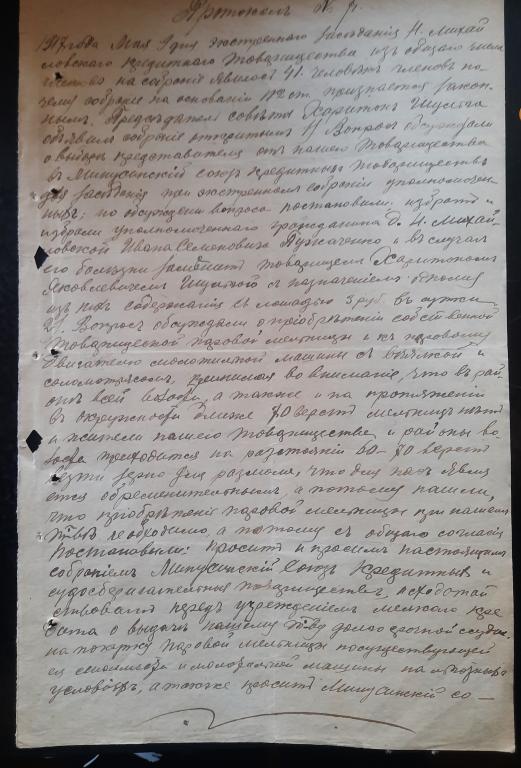 Протоколъ № 1.
1917 года Мая 9 дня экстренного заседанія Н. Михай
ловскаго кредитного товарищества изъ общаго числа
на собраніе явилось 41 человѣкъ членовъ по
чему собраніе на основаніи ст. признается закон
нымъ. Предсѣдатель совѣта Харитонъ
объявилъ собраніе открытымъ 1) Вопросъ обсуждали
о выборѣ представителя отъ нашего товарищества
въ Минусинскій союзъ кредитныхъ товариществъ
для засѣданія при экстренномъ собраніи уполномочен
ныхъ; по обсужденіи вопроса постановили: избрать и
избрали уполномоченного гражданина д. Н. Михай
ловской Ивана Семеновича и въ случаѣ
его болѣзни замѣнитъ товарищемъ Харитономъ
Яковлевичемъ съ назначеніемъ
изъ нихъ содержанія съ лошадью 3 руб. въ сутки
2) Вопросъ обсуждали о пріобрѣтеніи собственной
товарищеской паровой мельницы и къ паровому
двигателю молотильной машины съ вѣялкой и
соломотрясомъ, принимая во вниманіе, что въ рай
онѣ всей волости, а также и на протяженіи
въ окружности ближе 70 верстъ мельницъ нѣтъ
и жители нашего товарищества и районы во
лости приходится на разстояніи 60-70 верстъ
везти зерно для размола, что для насъ явля
ется обременительнымъ, а потому нашли,
что пріобрѣтеніе паровой мельницы при нашемъ
Т-вѣ необходимо, а потому съ общаго согласія
Постановили: просить и просимъ настоящимъ
собраніемъ Минусинскій Союзъ кредитныхъ и
судосберегательныхъ товариществъ, исходатай
ствовать передъ учрежденіемъ мелкаго кре
дита о выдачѣ нашему Т-ву долгосрочной ссуды
на покупку паровой мельницы
и молотильной машины на льготныхъ
условіяхъ, а также просить Минусинскій со-